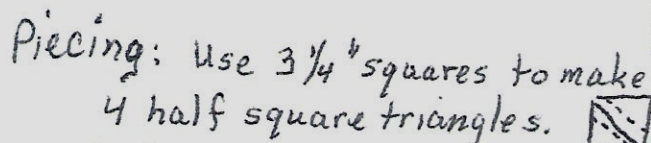 Piecing: Use 3 1/4" squares to make
4 half square triangles.